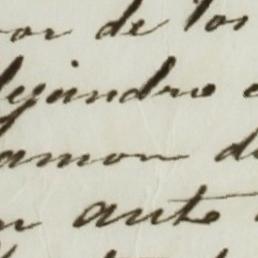 or de los
lejandro
amon de
n ante